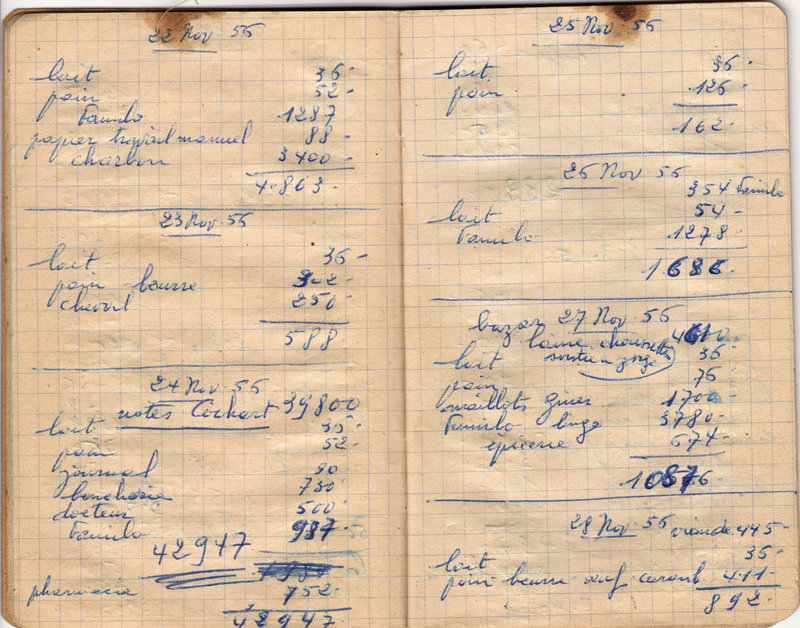 22 Nov 56
lait 36-
pain 52-
Familo 1287
papier travail manuel 88-
charbon 3400-
4.863-
23 Nov 56
lait 36-
pain beurre 302-
cheval 250-
588
24 Nov 56
notes Cochart 39800
lait 36-
pain 52-
journal 20
boucherie 730
docteur 500
Familo 987-
42947
pharmacie 752-
42947-
25 Nov 56
lait 36-
pain 126-
162-
26 Nov 56
354 Familo
lait 54-
Familo 1278-
1686-
bazar 27 Nov 56
laine chaussette
soutien gorge
lait 36-
pain 76
maillots 1700
Familo linge 3780-
épicerie 674-
10876-
28 Nov 56 viande 445-
lait 36-
pain beurre œuf 411-
892-